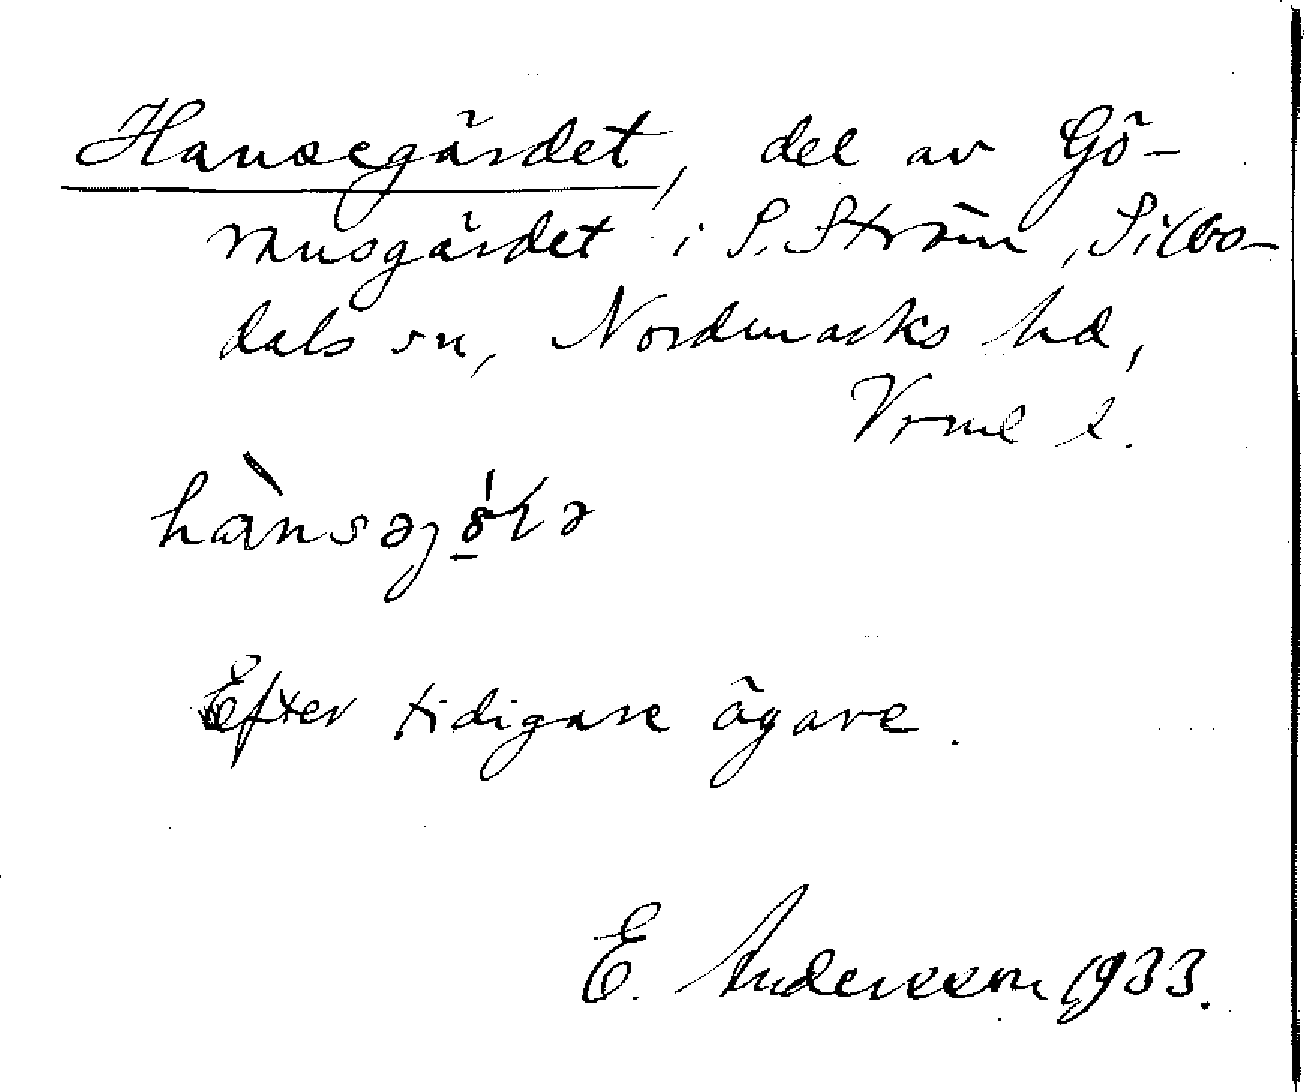 Hansegärdet, del av Gö-
ransgärdet i S. Ström, Silbo-
dals sn, Nordmarks hd,
Vrml l.
Efter tidigare ägare.
E. Andersson 1933.